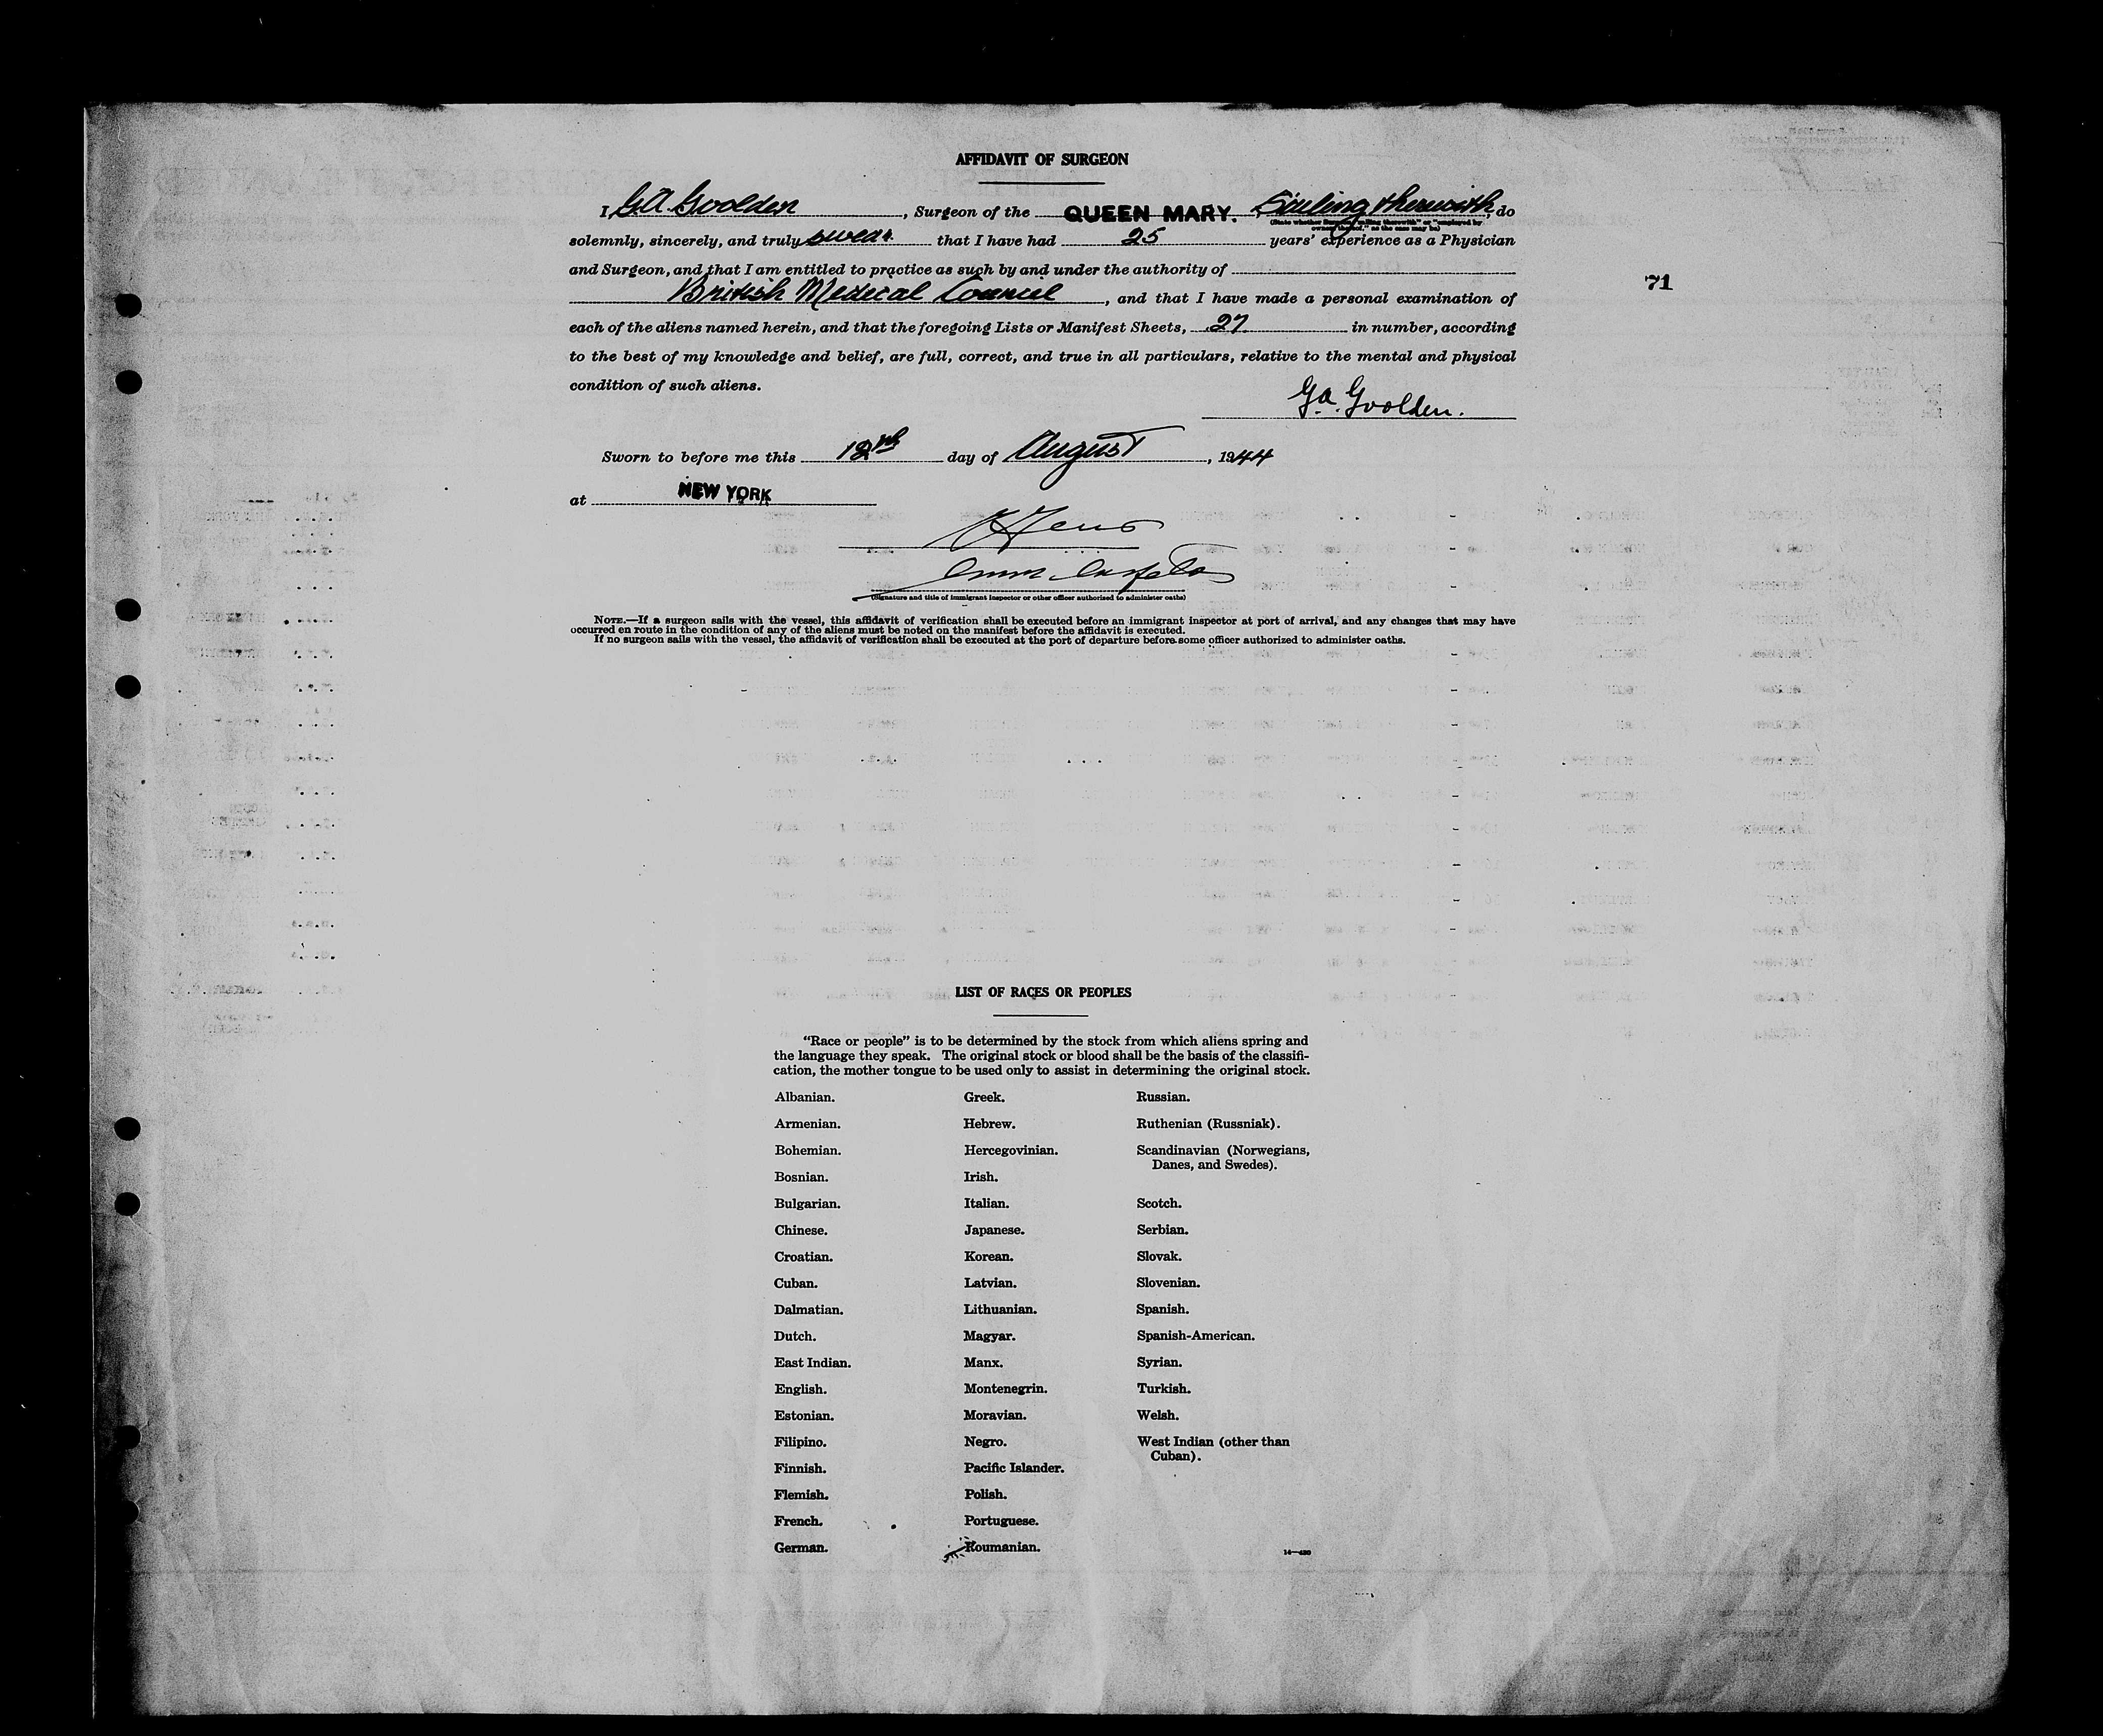 AFFIDAVIT OF SURGEON
I, G.A. Goolden, Surgeon of the QUEEN MARY. Sailing therewith, do
(State whether surgeon "sailing therewith" or "employed by
owners thereof," as the case may be)
solemnly, sincerely, and truly swear that I have had 25 years' experience as a Physician
and Surgeon, and that I am entitled to practice as such by and under the authority of
British Medical Council, and that I have made a personal examination of
71
each of the aliens named herein, and that the foregoing Lists or Manifest Sheets, 27 in number, according
to the best of my knowledge and belief, are full, correct, and true in all particulars, relative to the mental and physical
condition of such aliens.
G.A. Goolden.
Sworn to before me this 12th day of August, 1944
at NEW YORK
(Signature and title of immigrant inspector or other officer authorized to administer oaths)
NOTE.—If a surgeon sails with the vessel, this affidavit of verification shall be executed before an immigrant inspector at port of arrival, and any changes that may have
occurred en route in the condition of any of the aliens must be noted on the manifest before the affidavit is executed.
If no surgeon sails with the vessel, the affidavit of verification shall be executed at the port of departure before some officer authorized to administer oaths.
LIST OF RACES OR PEOPLES
"Race or people" is to be determined by the stock from which aliens spring and
the language they speak. The original stock or blood shall be the basis of the classifi-
cation, the mother tongue to be used only to assist in determining the original stock.
Albanian.
Armenian.
Bohemian.
Bosnian.
Bulgarian.
Chinese.
Croatian.
Cuban.
Dalmatian.
Dutch.
East Indian.
English.
Estonian.
Filipino.
Finnish.
Flemish.
French.
German.
Greek.
Hebrew.
Hercegovinian.
Irish.
Italian.
Japanese.
Korean.
Latvian.
Lithuanian.
Magyar.
Manx.
Montenegrin.
Moravian.
Negro.
Pacific Islander.
Polish.
Portuguese.
Roumanian.
Russian.
Ruthenian (Russniak).
Scandinavian (Norwegians,
Danes, and Swedes).
Scotch.
Serbian.
Slovak.
Slovenian.
Spanish.
Spanish-American.
Syrian.
Turkish.
Welsh.
West Indian (other than
Cuban).